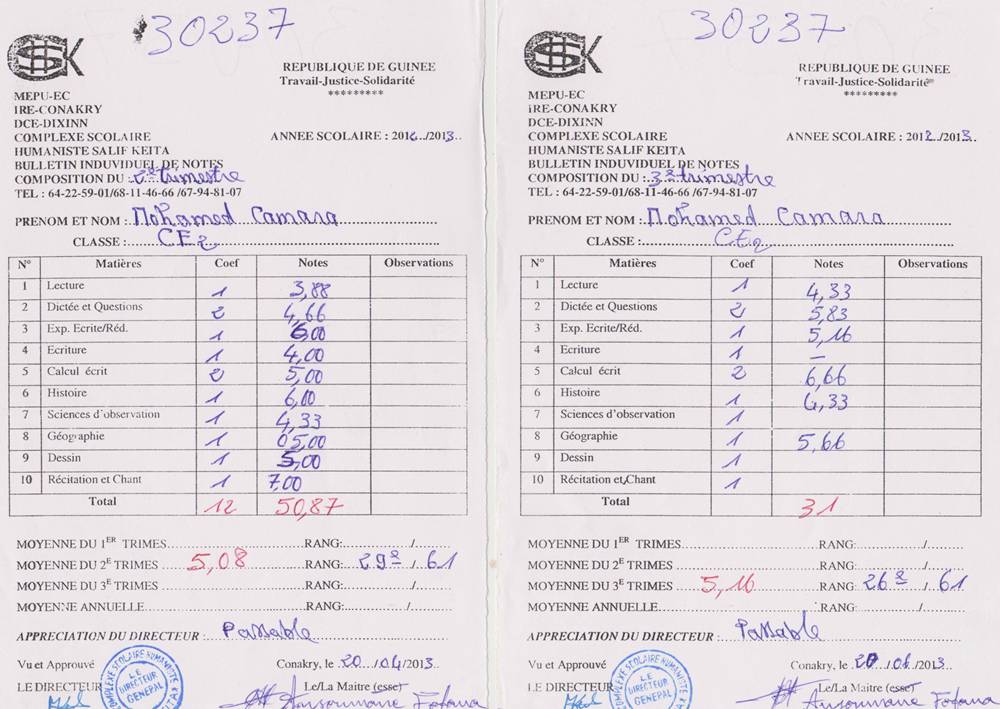 30237
CSHSK
REPUBLIQUE DE GUINEE
Travail-Justice-Solidarité
*********
MEPU-EC
IRE-CONAKRY
DCE-DIXINN
COMPLEXE SCOLAIRE
ANNEE SCOLAIRE : 2012../2013..
HUMANISTE SALIF KEITA
BULLETIN INDUVIDUEL DE NOTES
COMPOSITION DU : 2e trimestre
TEL : 64-22-59-01/68-11-46-66 /67-94-81-07
PRENOM ET NOM : Mohamed Camara
CLASSE : CE2
N° Matières Coef Notes Observations
1 Lecture 1 3,88
2 Dictée et Questions 2 4,66
3 Exp. Ecrite/Réd. 1 6,00
4 Ecriture 1 4,00
5 Calcul écrit 2 5,00
6 Histoire 1 6,00
7 Sciences d'observation 1 4,33
8 Géographie 1 05,00
9 Dessin 1 5,00
10 Récitation et Chant 1 7,00
Total 12 50,87
MOYENNE DU 1ER TRIMES RANG: /
MOYENNE DU 2E TRIMES 5,08 RANG: 29e / 61
MOYENNE DU 3E TRIMES RANG: /
MOYENNE ANNUELLE RANG: /
APPRECIATION DU DIRECTEUR : Passable
Vu et Approuvé Conakry, le 20 /04/2013
LE DIRECTEUR Le/La Maitre (esse)
LE DIRECTEUR GENERAL
Ansoumane Fofana
30237
REPUBLIQUE DE GUINEE
Travail-Justice-Solidarité
*********
MEPU-EC
IRE-CONAKRY
DCE-DIXINN
COMPLEXE SCOLAIRE
ANNEE SCOLAIRE : 2012../2013..
HUMANISTE SALIF KEITA
BULLETIN INDUVIDUEL DE NOTES
COMPOSITION DU : 3e trimestre
TEL : 64-22-59-01/68-11-46-66 /67-94-81-07
PRENOM ET NOM : Mohamed Camara
CLASSE : C.E.2
N° Matières Coef Notes Observations
1 Lecture 1 4,33
2 Dictée et Questions 2 5,83
3 Exp. Ecrite/Réd. 1 5,16
4 Ecriture 1 —
5 Calcul écrit 2 6,66
6 Histoire 1 4,33
7 Sciences d'observation 1
8 Géographie 1 5,66
9 Dessin 1
10 Récitation et Chant 1
Total 31
MOYENNE DU 1ER TRIMES RANG: /
MOYENNE DU 2E TRIMES RANG: /
MOYENNE DU 3E TRIMES 5,16 RANG: 26e / 61
MOYENNE ANNUELLE RANG: /
APPRECIATION DU DIRECTEUR : Passable
Vu et Approuvé Conakry, le 20 /06/2013
LE DIRECTEUR Le/La Maitre (esse)
LE DIRECTEUR GENERAL
Ansoumane Fofana